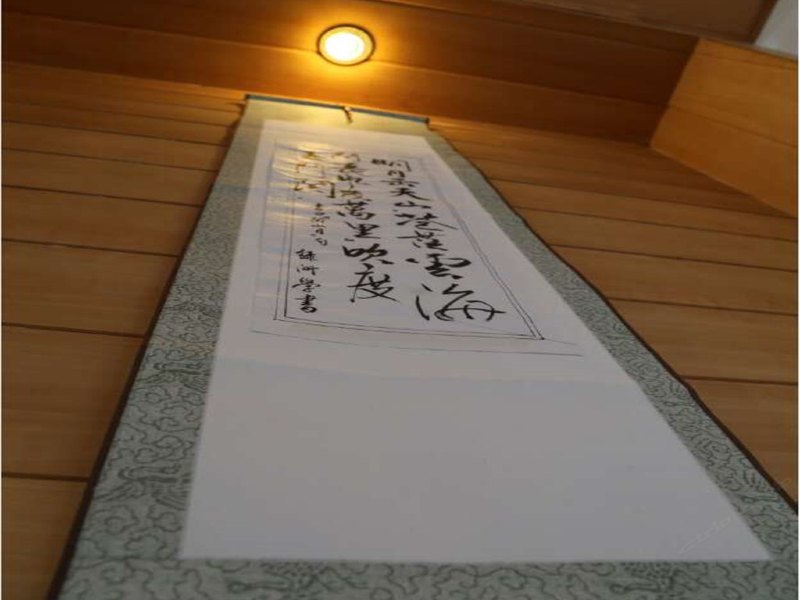 明月出天山蒼茫雲海
間長風幾萬里吹度
玉門關
學書